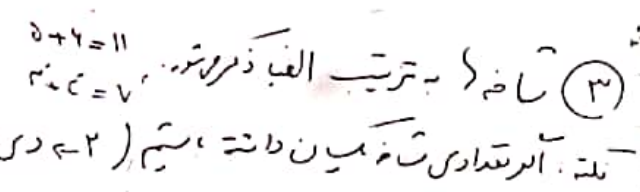 ۵+۶=۱۱
۳+۴=۷
③ شاخه ها به ترتیب الفبا ذکر می شود.
نکته: اگر تعدادی شاخه یکسان داشته باشیم (۲ ← دی